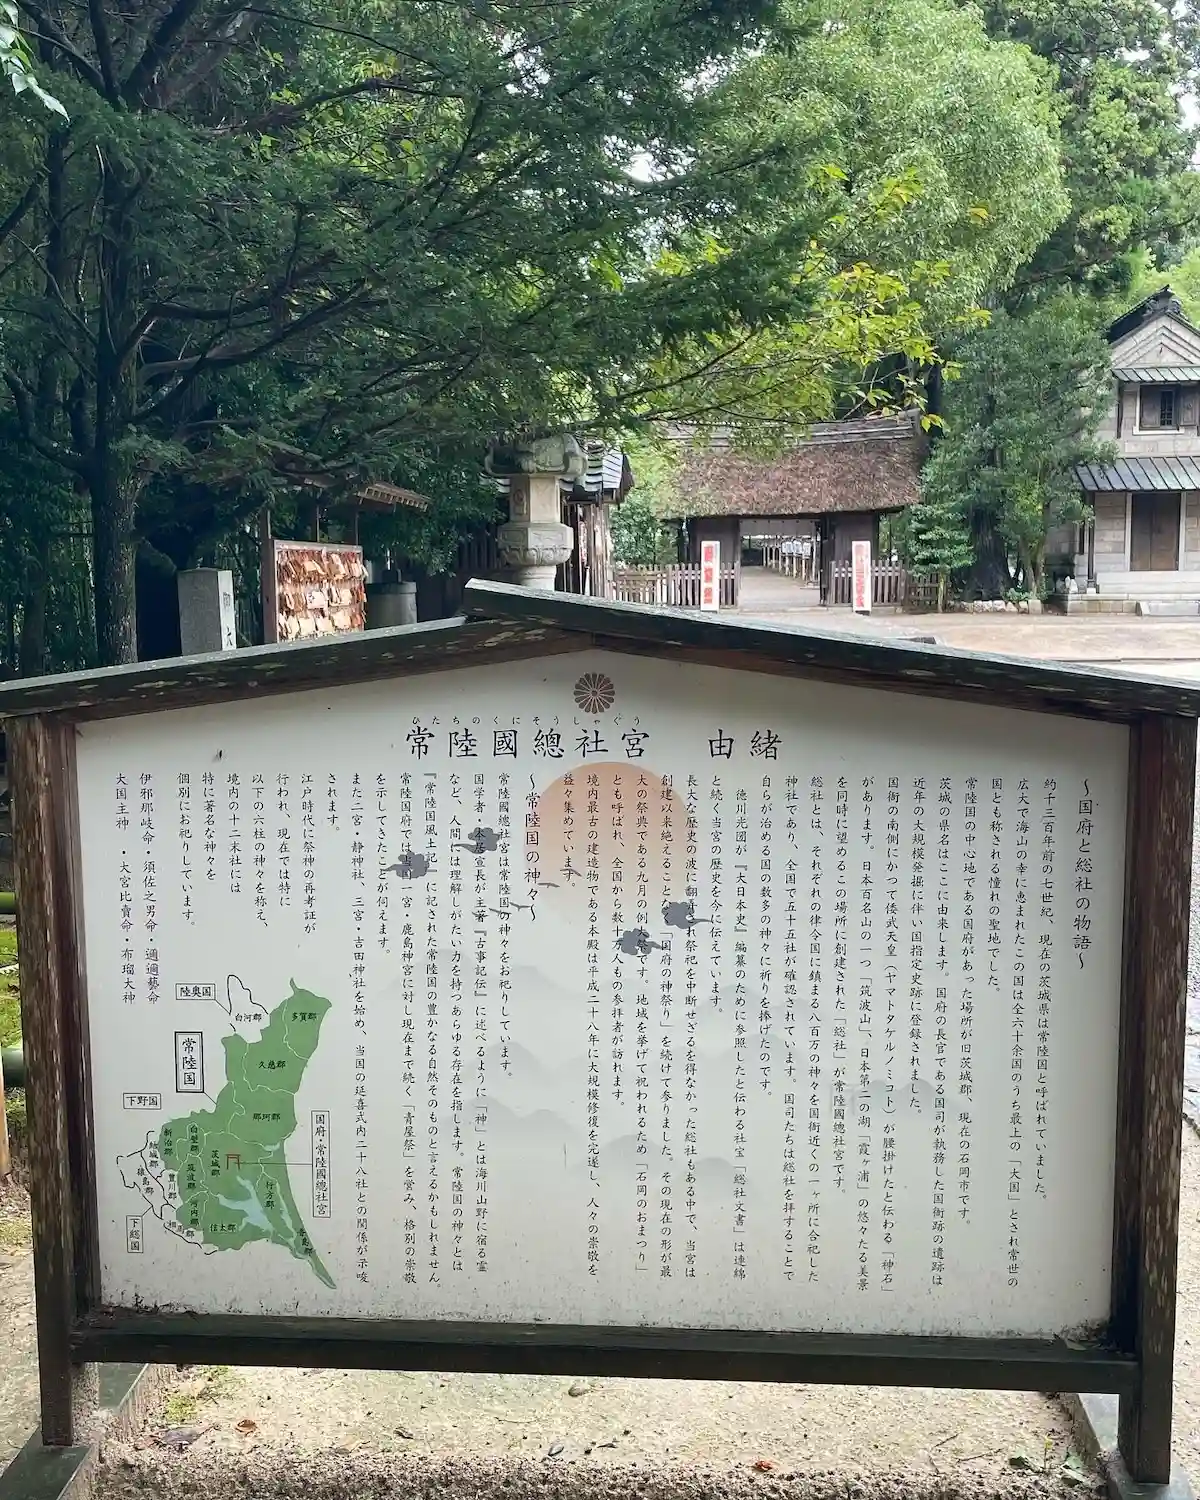 ひたちのくにそうしゃぐう
常陸國總社宮 由緒
～国府と総社の物語～
約千三百年前の七世紀、現在の茨城県は常陸国と呼ばれていました。
広大で海山の幸に恵まれたこの国は全六十余国のうち最上の「大国」とされ常世の
国とも称される憧れの聖地でした。
常陸国の中心地である国府があった場所が旧茨城郡、現在の石岡市です。
茨城の県名はここに由来します。国府の長官である国司が執務した国衙跡の遺跡は
近年の大規模発掘に伴い国指定史跡に登録されました。
国衙の南側にかつて倭武天皇（ヤマトタケルノミコト）が腰掛けたと伝わる「神石」
があります。日本百名山の一つ「筑波山」、日本第二の湖「霞ヶ浦」の悠々たる美景
を同時に望めるこの場所に創建された「総社」が常陸國總社宮です。
総社とは、それぞれの律令国に鎮まる八百万の神々を国衙近くの一ヶ所に合祀した
神社であり、全国で五十五社が確認されています。国司たちは総社を拝することで
自らが治める国の数多の神々に祈りを捧げたのです。
徳川光圀が『大日本史』編纂のために参照したと伝わる社宝「総社文書」は連綿
と続く当宮の歴史を今に伝えています。
長大な歴史の波に翻弄され祭祀を中断せざるを得なかった総社もある中で、当宮は
創建以来絶えることなく「国府の神祭り」を続けて参りました。その現在の形が最
大の祭典である九月の例大祭です。地域を挙げて祝われるため「石岡のおまつり」
とも呼ばれ、全国から数十万人もの参拝者が訪れます。
境内最古の建造物である本殿は平成二十八年に大規模修復を完遂し、人々の崇敬を
益々集めています。
～常陸国の神々～
常陸國總社宮は常陸国の神々をお祀りしています。
国学者・本居宣長が主著『古事記伝』に述べるように「神」とは海川山野に宿る霊
など、人間には理解しがたい力を持つあらゆる存在を指します。常陸国の神々とは
『常陸国風土記』に記された常陸国の豊かなる自然そのものと言えるかもしれません。
常陸国府では当国一宮・鹿島神宮に対し現在まで続く「青屋祭」を営み、格別の崇敬
を示してきたことが伺えます。
また二宮・静神社、三宮・吉田神社を始め、当国の延喜式内二十八社との関係が示唆
されます。
江戸時代に祭神の再考証が
行われ、現在では特に
以下の六柱の神々を称え、
境内の十二末社には
特に著名な神々を
個別にお祀りしています。
伊邪那岐命・須佐之男命・邇邇藝命
大国主神・大宮比賣命・布瑠大神
陸奥国
白河郡
多賀郡
常陸国
久慈郡
下野国
那珂郡
国府・常陸國總社宮
新治郡
白壁郡
茨城郡
結城郡
筑波郡
猿島郡
豊川郡
河内郡
行方郡
下総国
相馬郡
信太郡